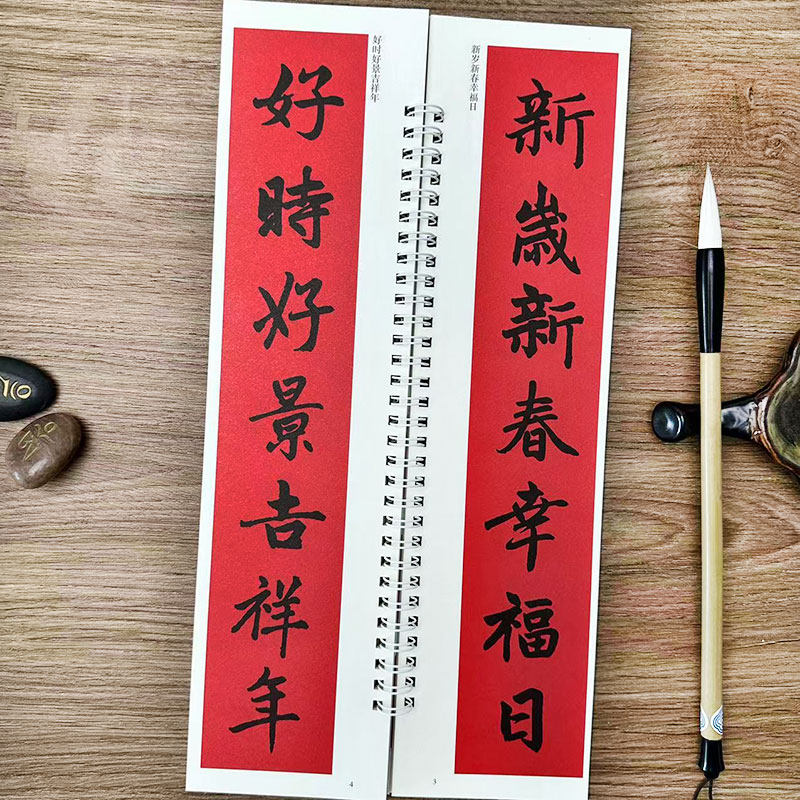 新歲新春幸福日
新岁新春幸福日
3
好時好景吉祥年
好时好景吉祥年
4